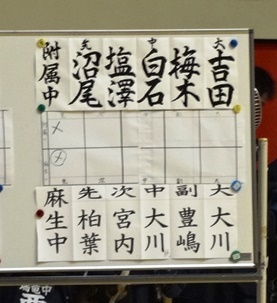 大 吉田
梅木
中 白石
塩澤
先 沼尾
附属中
大 大川
副 豊嶋
中 大川
次 宮内
先 柏葉
麻生中